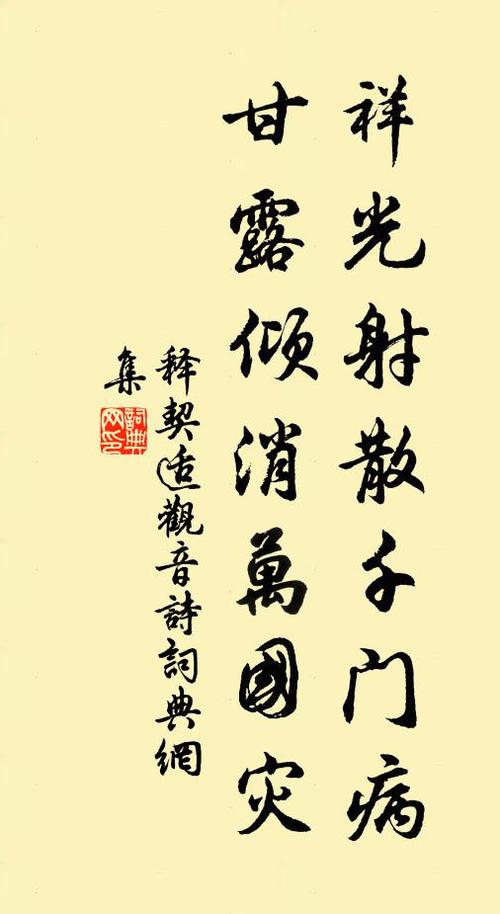 祥光射散千门病
甘露倾消萬國灾
释契适觀音詩詞典網
集
詞典網印